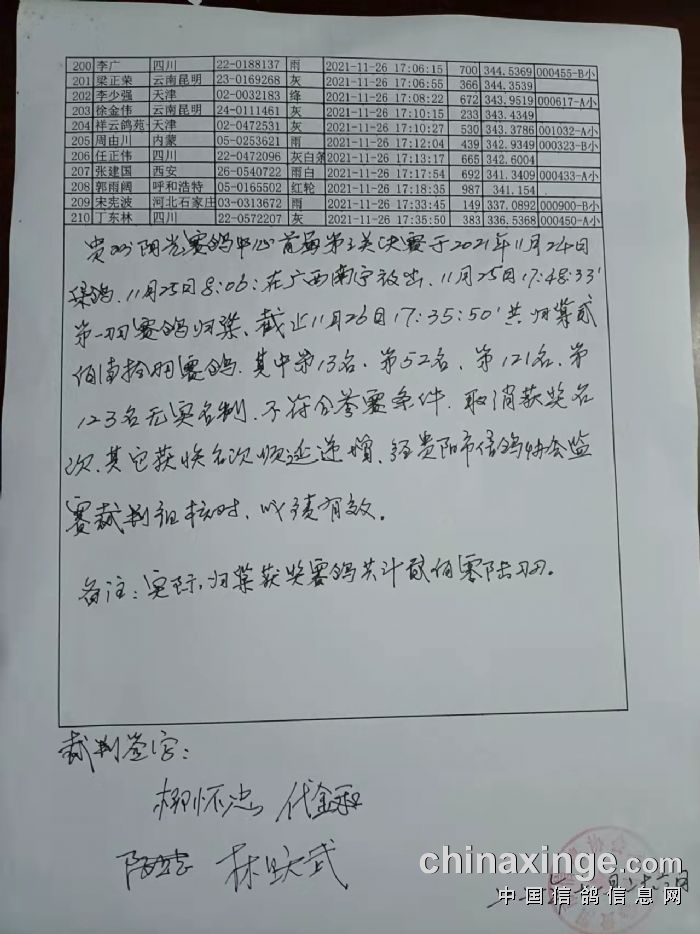 200 李广 四川 22-0188137 雨 2021-11-26 17:06:15 700 344.5369 000455-B小
201 梁正荣 云南昆明 23-0169268 灰 2021-11-26 17:06:55 366 344.3539
202 李少强 天津 02-0032183 绛 2021-11-26 17:08:22 672 343.9519 000617-A小
203 徐金伟 云南昆明 24-0111461 灰 2021-11-26 17:10:15 233 343.4349
204 祥云鸽苑- 天津 02-0472531 灰 2021-11-26 17:10:27 530 343.3786 001032-A小
205 周由川 内蒙 05-0253621 雨 2021-11-26 17:12:04 439 342.9349 000323-B小
206 任正伟 四川 22-0472096 灰白条 2021-11-26 17:13:17 665 342.6004
207 张建国 西安 26-0540722 雨白 2021-11-26 17:17:54 692 341.3409 000433-A小
208 郭雨阔 呼和浩特 05-0165502 红轮 2021-11-26 17:18:35 987 341.154
209 宋宪波 河北石家庄 03-0313672 雨 2021-11-26 17:33:45 149 337.0892 000900-B小
210 丁东林 四川 22-0572207 灰 2021-11-26 17:35:50 383 336.5368 000450-A小
贵州阳光赛鸽中心首届第三关决赛于2021年11月24日
集鸽、11月25日8:06:在广西南宁放出、11月25日17:48:33'
第一羽赛鸽归巢、截止11月26日17:35:50'共归巢贰
佰壹拾羽赛鸽、其中第13名、第52名、第121名、第
123名无实名制、不符合参赛条件、取消获奖名
次、其它获奖名次顺延递增、经贵阳市信鸽协会监
赛裁判组核对、成绩有效。
备注:实际归巢获奖赛鸽共计贰佰零陆羽。
裁判签字:
柳怀忠 代金和
林跃武
chinaxinge.com
中国信鸽信息网